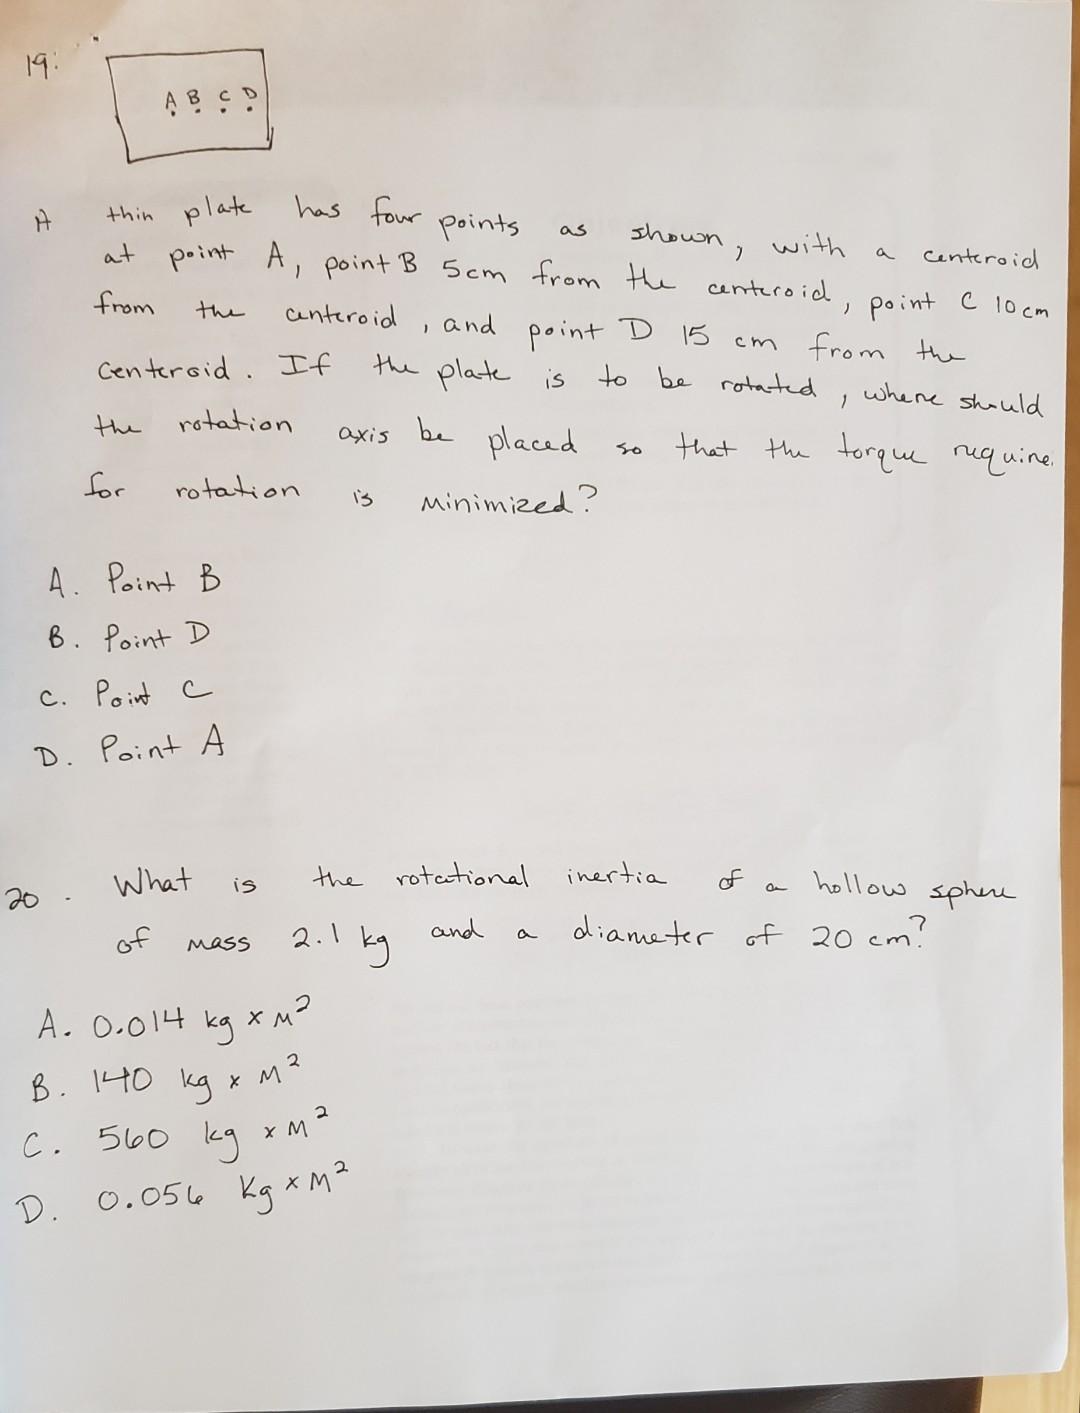 19.
A B C D
A thin plate has four points as shown, with a centeroid
at point A, point B 5cm from the centeroid, point C 10cm
from the centeroid, and point D 15 cm from the
centeroid. If the plate is to be rotated, where should
the rotation axis be placed so that the torque require
for rotation is minimized?
A. Point B
B. Point D
C. Point C
D. Point A
20. What is the rotational inertia of a hollow sphere
of mass 2.1 kg and a diameter of 20 cm?
A. 0.014 kg x m²
B. 140 kg x m²
C. 560 kg x m²
D. 0.056 kg x m²